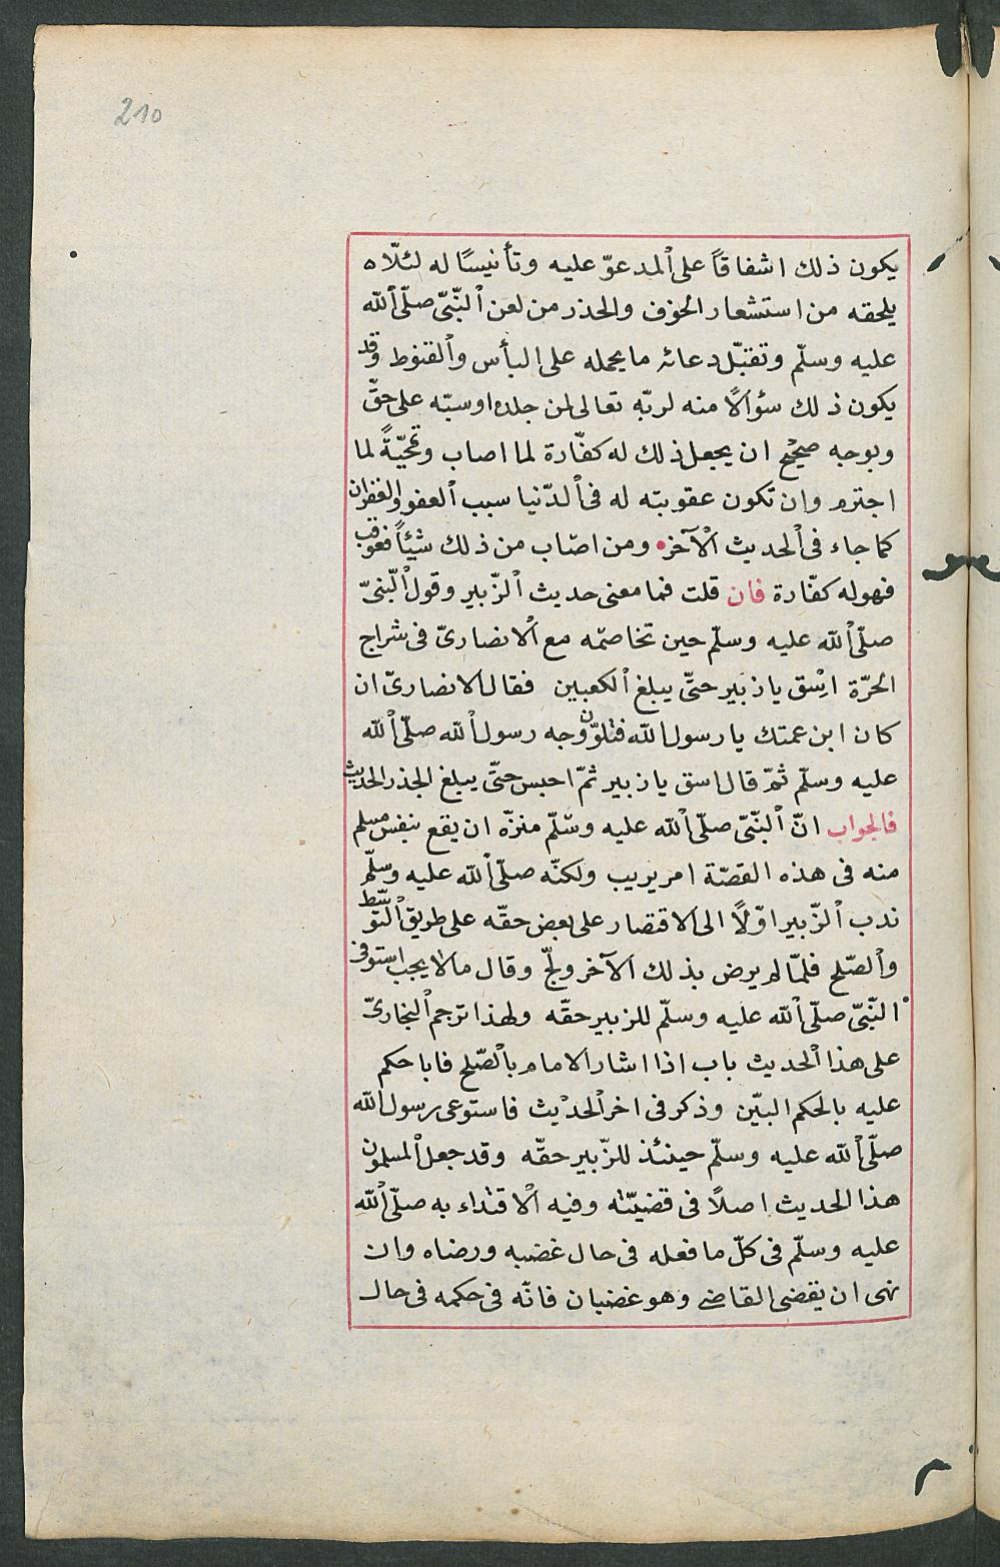 210
يكون ذلك اشفاقاً على المدعوّ عليه وتأنيسًا له لئلّا ه
يلحقه من استشعار الخوف والحذر من لعن النّبىّ صلّى الله
عليه وسلّم وتقبّل دعائه ما يحمله على اليأس والقنوط وقد
يكون ذلك سؤالًا منه لربّه تعالى لمن جلده او سبّه على حقّ
وبوجه صحيح ان يجعل ذلك له كفّارة لما اصاب وتمحيّةً لما
اجترم وان تكون عقوبته له فى الدّنيا سبب العفو والغفران
كما جاء فى الحديث الآخر ومن اصّاب من ذلك شيئاً فعوقب
فهو له كفّارة فان قلت فما معنى حديث الزّبير وقول النّبىّ
صلّى الله عليه وسلّم حين تخاصمّه مع الانصارىّ فى شراج
الحرّة اسق يا زبير حتّى يبلغ الكعبين فقال الانصارىّ ان
كان ابن عمتك يا رسول الله فتلوّن وجه رسول الله صلّى الله
عليه وسلّم ثمّ قال اسق يا زبير ثمّ احبس حتّى يبلغ الجذر الحديث
فالجواب انّ النّبىّ صلّى الله عليه وسّلّم منزّه ان يقع بنفس مسلم
منه فى هذه القصّة امر يريب ولكنّه صلّى الله عليه وسلّم
ندب الزّبير اوّلًا الى الاقتصار على بعض حقّه على طريق التّوسّط
والصّلح فلمّا لم يرض بذلك الآخر ولجّ وقال ما لا يجب استوفى
النّبىّ صلّى الله عليه وسلّم للزبير حقّه ولهذا ترجم البخارىّ
على هذا الحديث باب اذا اشار الامام بالصّلح فابا حكم
عليه بالحكم البيّن وذكر فى اخر الحديث فاستوعى رسول الله
صلّى الله عليه وسلّم حينئذ للزّبير حقّه وقد جعل المسلمون
هذا الحديث اصلًا فى قضيّته وفيه الاقتداء به صلّى الله
عليه وسلّم فى كلّ ما فعله فى حال غضبه ورضاه وان
نهى ان يقضى القاضى وهو غضبان فانّه فى حكمه فى حال